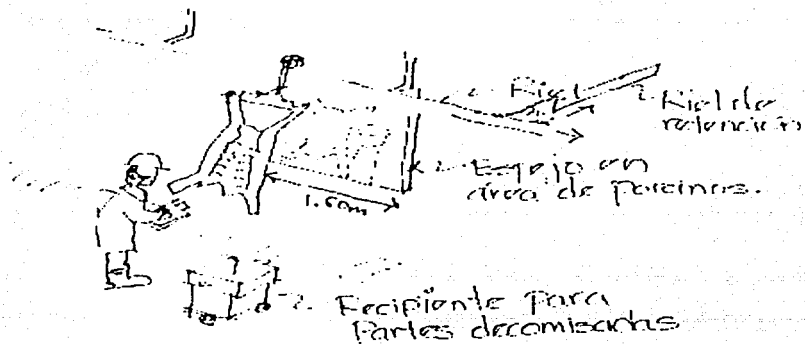 Riel
Riel de
retención
Espejo en
área de porcinos.
1.60m
Recipiente para
Partes decomisadas